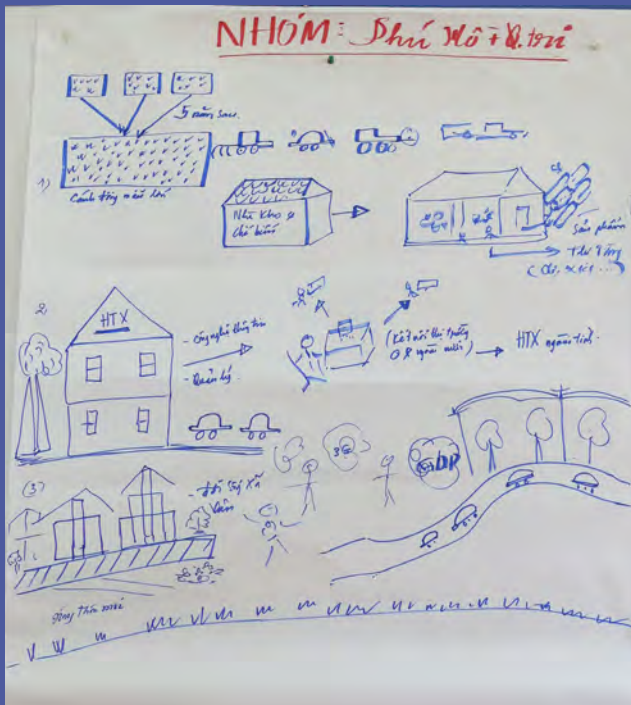 NHÓM: Phú Hồ + Q.trị
5 năm sau
1)
Cánh đồng mẫu lớn
Nhà kho & chế biến
Sản phẩm
Thị trường
(Chợ, x
2
HTX
- Công nghệ thông tin
- Quản lý
(Kết nối thị trường
ở & ngoài nước)
HTX ngoài tỉnh.
(3)
- Đời sống xã viên
nông thôn mới